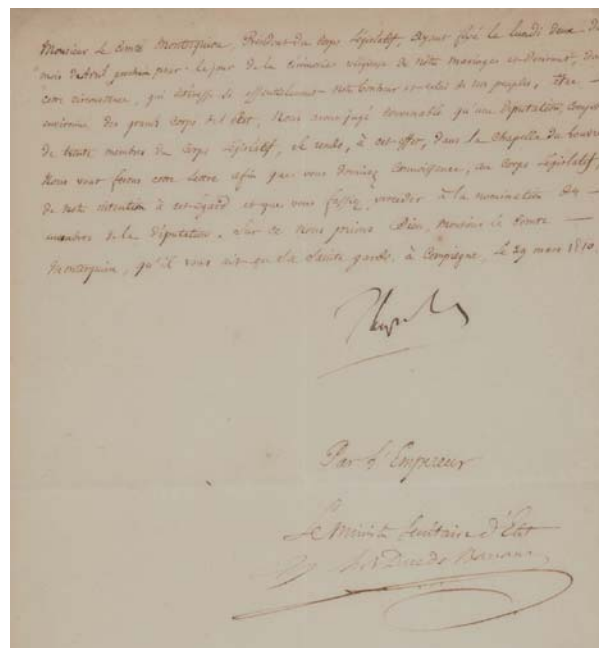 Monsieur le Comte Montesquiou, Président du Corps Législatif, Ayant fixé le lundi deux du
mois d'Avril prochain pour le jour de la cérémonie religieuse de notre mariage, et désirant, dans
cette circonstance, qui intéresse si essentiellement notre bonheur et celui de nos peuples, être
environné des grands corps de l'état, Nous avons jugé convenable qu'une députation, composée
de trente membres du Corps Législatif, se rende, à cet effet, dans la Chapelle du Louvre
Nous vous faisons cette lettre afin que vous donniez connaissance, au Corps Législatif,
de notre intention à cet égard et que vous fassiez procéder à la nomination des
membres de la députation. Sur ce nous prions Dieu, Monsieur le Comte
Montesquiou, qu'il vous ait en sa sainte garde. à Compiègne, le 29 mars 1810.
Par l'Empereur
Le Ministre Secrétaire d'Etat
Duc de Bassano